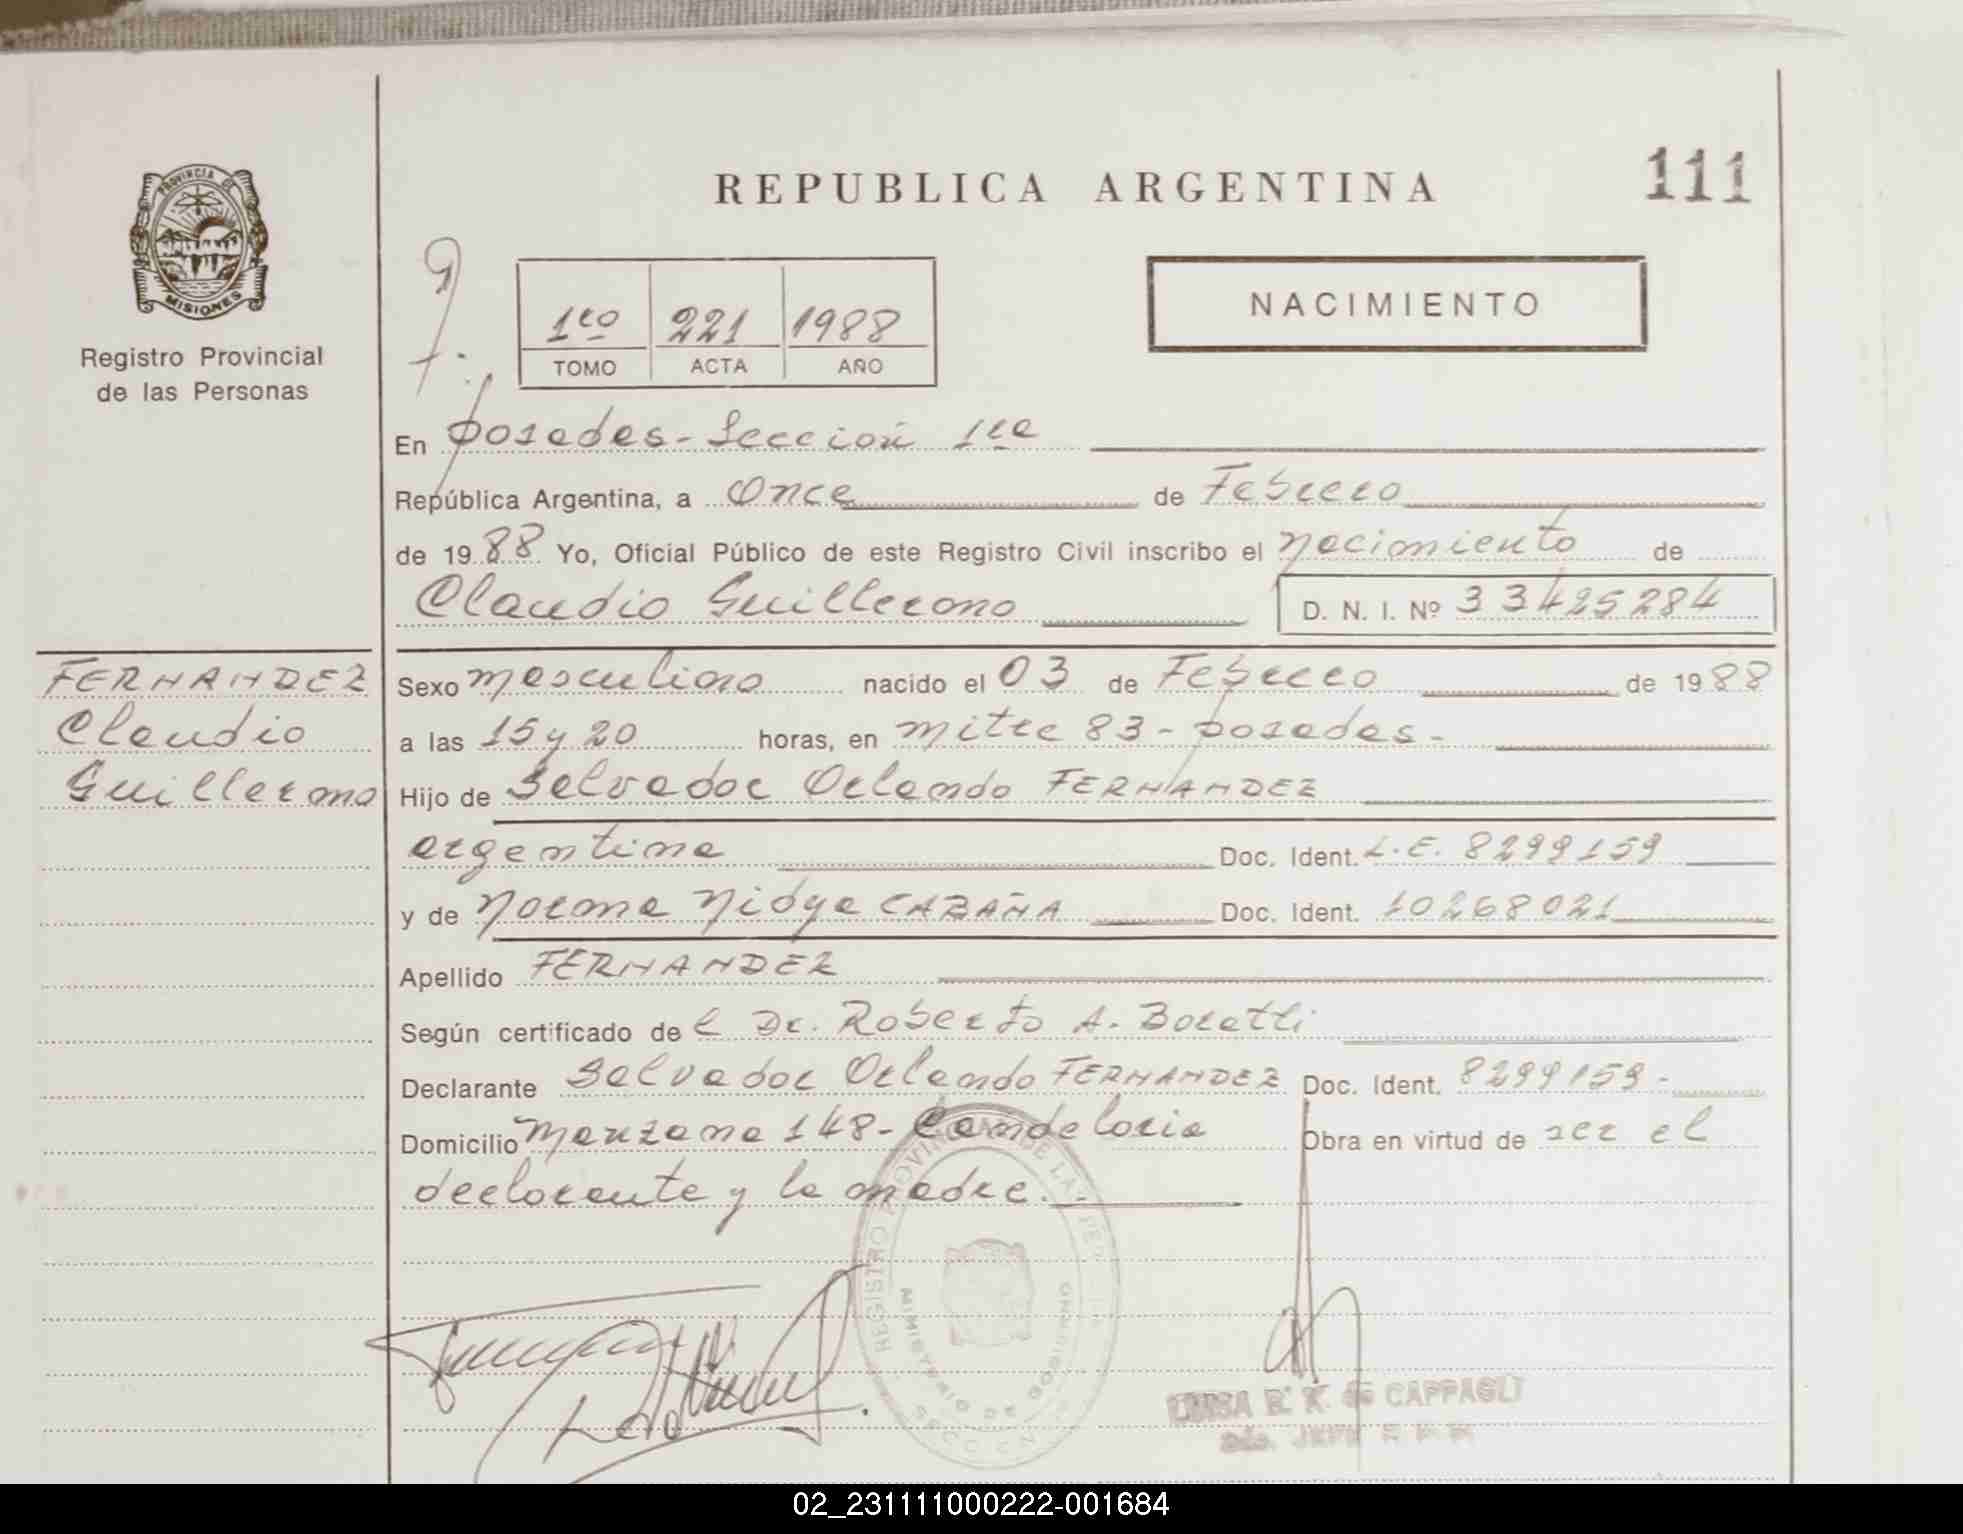 REPUBLICA ARGENTINA
111
PROVINCIA DE
MISIONES
Registro Provincial
de las Personas
1ro 221 1988
TOMO ACTA AÑO
NACIMIENTO
En Posadas - Sección 1ra
República Argentina, a Once de Febrero
de 1988 Yo, Oficial Público de este Registro Civil inscribo el nacimiento de
Claudio Guillermo D. N. I. Nº 33425284
FERNANDEZ
Claudio
Guillermo
Sexo masculino nacido el 03 de Febrero de 1988
a las 15 y 20 horas, en mitre 83 - posadas -
Hijo de Salvador Orlando FERNANDEZ
argentina Doc. Ident. L.E. 8299159
y de Norma Nidya CABAÑA Doc. Ident. 10268021
Apellido FERNANDEZ
Según certificado del Dr. Roberto A. Boratti
Declarante Salvador Orlando FERNANDEZ Doc. Ident. 8299159 -
Domicilio Manzana 148 - Candelaria Obra en virtud de ser el
declarante y la madre. -
REGISTRO PROVINCIAL DE LAS PER
MINISTERIO DE GOBIERNO
LUISA B. K. de CAPPAGLI
02_231111000222-001684